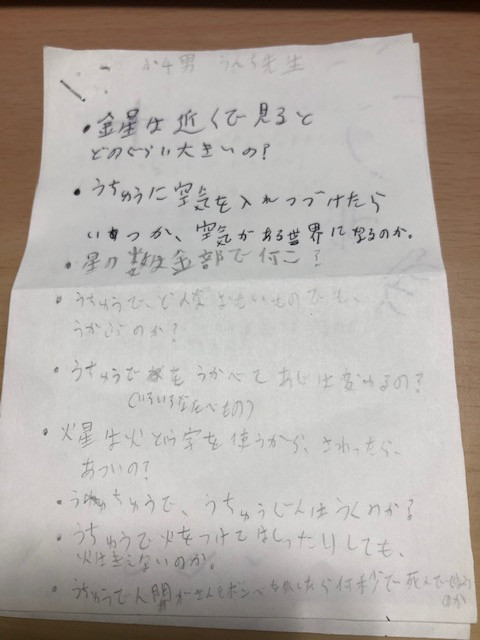 小4男 うんち先生
・金星は近くで見ると
どのぐらい大きいの?
・うちゅうに空気を入れつづけたら
いつか、空気がある世界になるのか。
・星の数は全部で何こ?
・うちゅうで、どんなおもいものでも、
うかぶのか?
・うちゅうで うかべて あじは変わるの?
(いろいろなたべもの)
・火星は火という字を使うから、さわったら、
あついの?
・うちゅうで、うちゅうじんはうくのか?
・うちゅうで火をつけてはしったりしても、
火はきえないのか。
・うちゅうで人間がさんそボンベ なしだったら何秒で死んで
のか